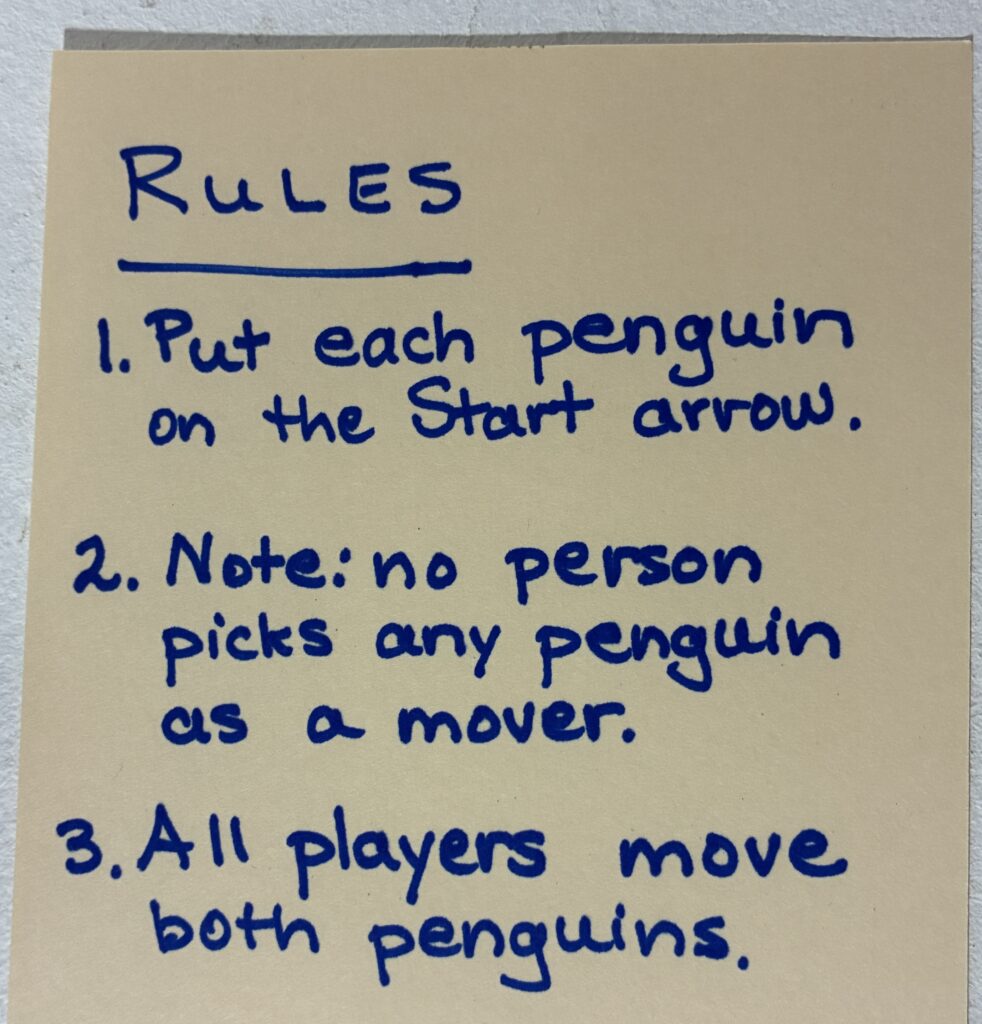 RULES
1. Put each penguin
on the Start arrow.
2. Note: no person
picks any penguin
as a mover.
3. All players move
both penguins.